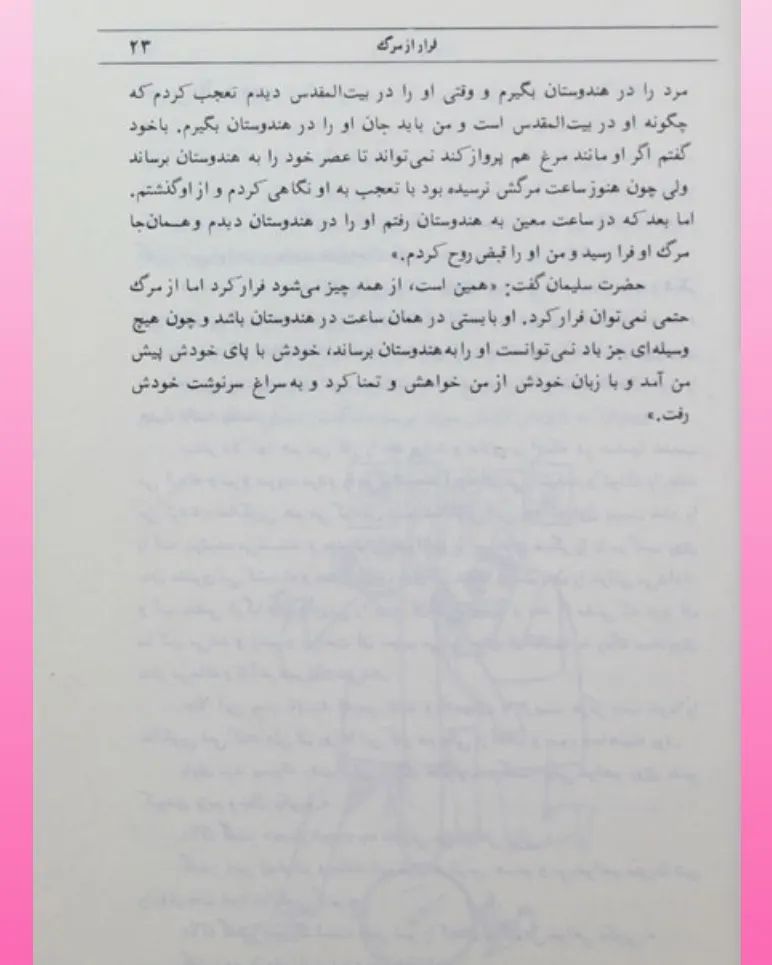 فرار از مرگ ۲۳
مرد را در هندوستان بگیرم و وقتی او را در بیت‌المقدس دیدم تعجب کردم که
چگونه او در بیت‌المقدس است و من باید جان او را در هندوستان بگیرم. باخود
گفتم اگر او مانند مرغ هم پرواز کند نمی‌تواند تا عصر خود را به هندوستان برساند
ولی چون هنوز ساعت مرگش نرسیده بود با تعجب به او نگاهی کردم و از او گذشتم.
اما بعد که در ساعت معین به هندوستان رفتم او را در هندوستان دیدم و همان‌جا
مرگ او فرا رسید و من او را قبض روح کردم.»
حضرت سلیمان گفت: «همین است، از همه چیز می‌شود فرار کرد اما از مرگ
حتمی نمی‌توان فرار کرد. او بایستی در همان ساعت در هندوستان باشد و چون هیچ
وسیله‌ای جز باد نمی‌توانست او را به هندوستان برساند، خودش با پای خودش پیش
من آمد و با زبان خودش از من خواهش و تمنا کرد و به سراغ سرنوشت خودش
رفت.»